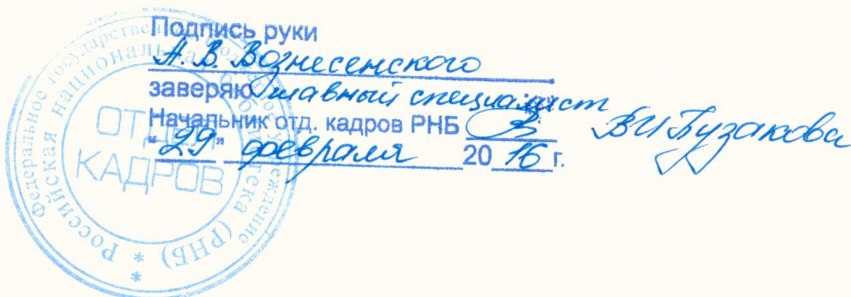 Подпись руки
А. В. Вознесенского
заверяю главный специалист
Начальник отд. кадров РНБ В.И. Бузакова
"29" февраля 2016 г.
Федеральное государственное бюджетное учреждение
Российская национальная библиотека (РНБ)
ОТДЕЛ
КАДРОВ